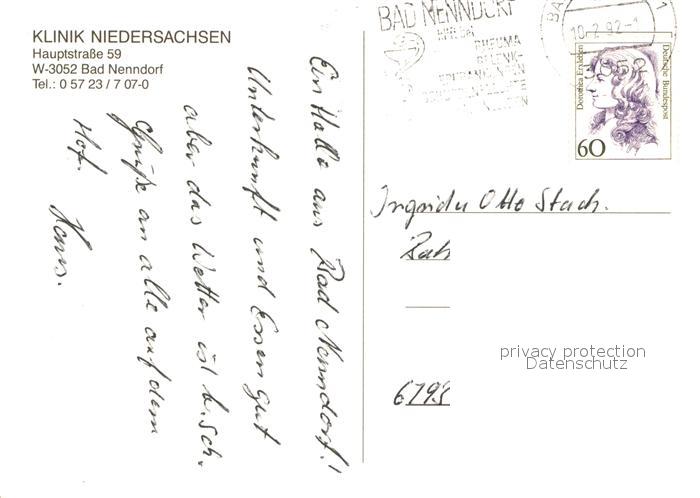 KLINIK NIEDERSACHSEN
Hauptstraße 59
W-3052 Bad Nenndorf
Tel.: 0 57 23 / 7 07-0
Ein Hallo aus Bad Nenndorf!
Unterkunft und Essen gut
aber das Wetter ist b. sch.
Grüße an alle auf dem
Hof. Hans.
BAD NENNDORF
RHEUMA
GELENK-
10.2.92
3052
Dorothea Erxleben
Deutsche Bundespost
60
Ingrid u Otto Stach.
privacy protection
Datenschutz
6798